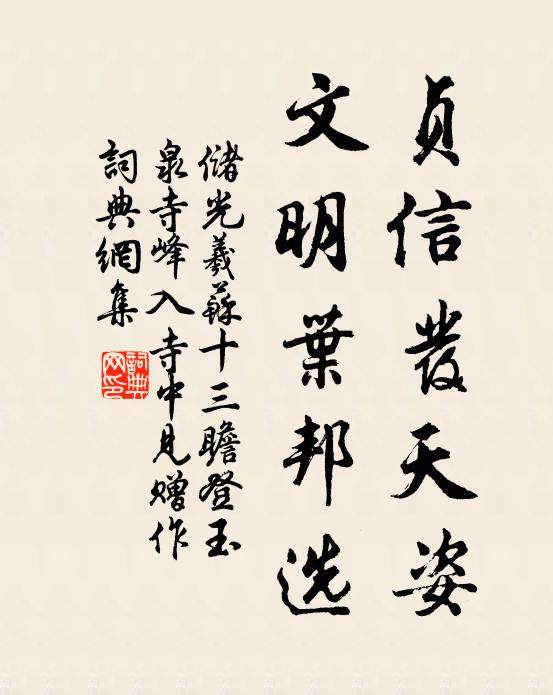 贞信發天姿
文明葉邦选
儲光羲蘇十三瞻登玉
泉寺峰入寺中见赠作
詞典網集
詞典
网印